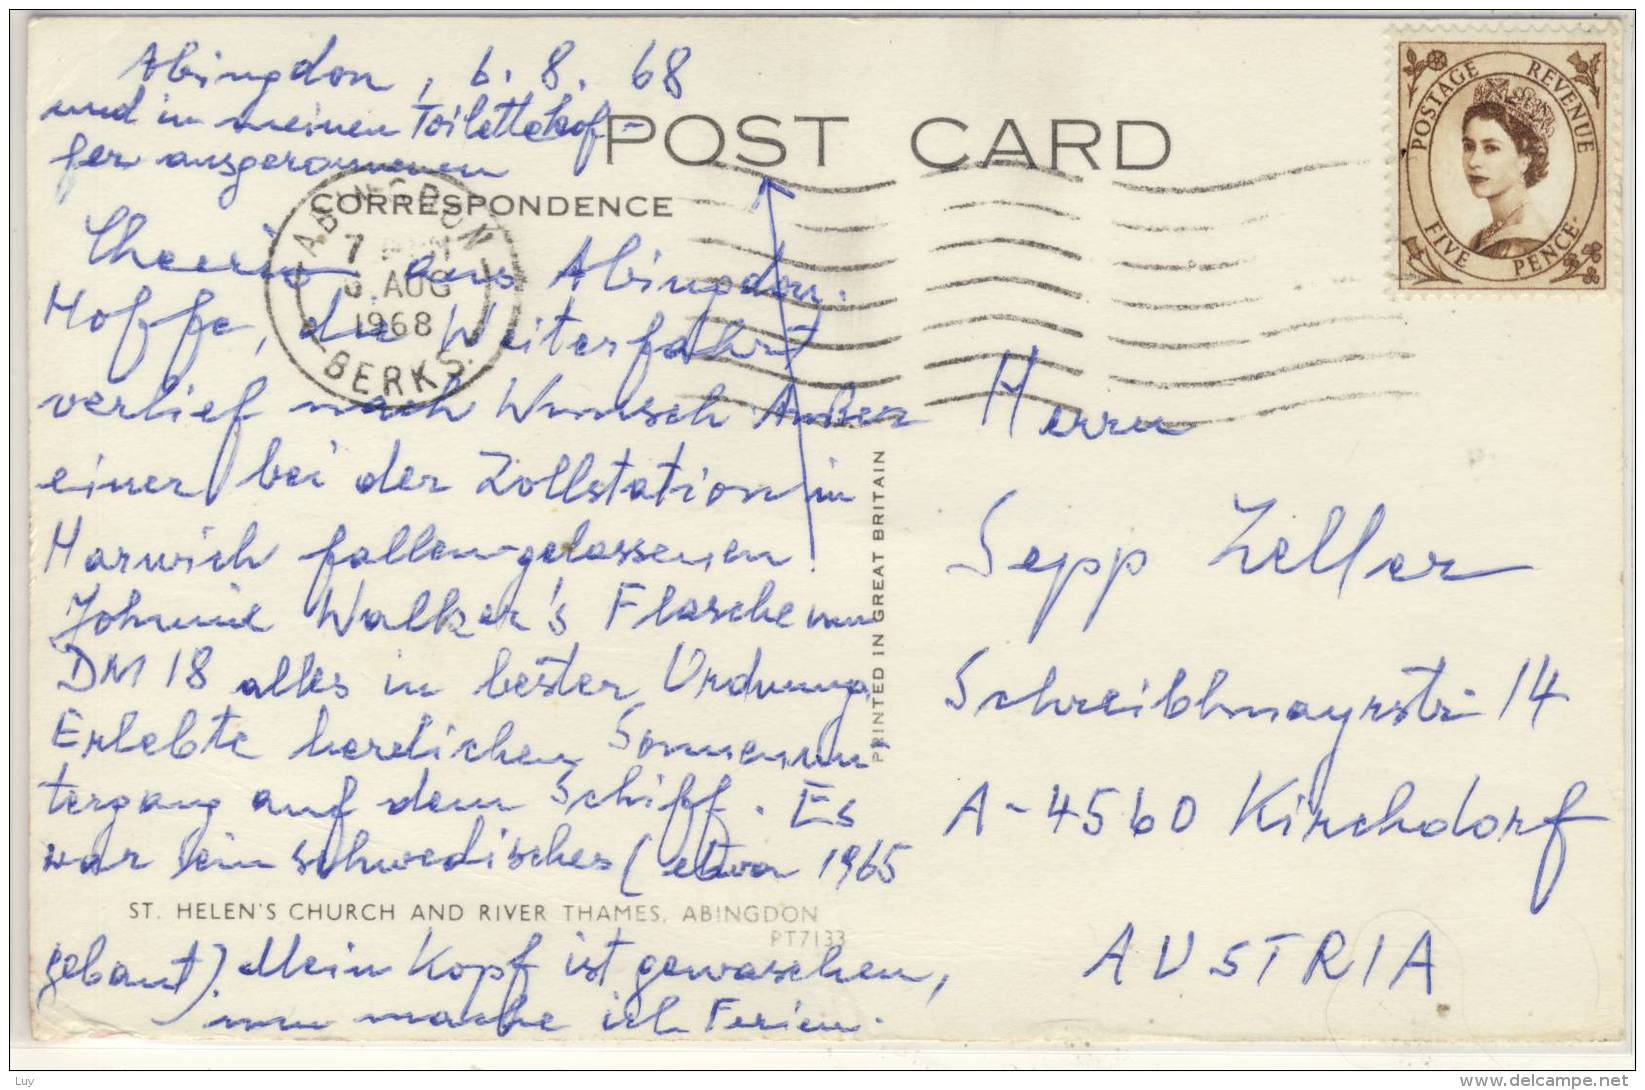 Abingdon, 6. 8. 68
und in meinen Toilettekof-
fer ausgeronnenen
POST CARD
CORRESPONDENCE
ABINGDON
7
AUG
1968
BERKS.
POSTAGE REVENUE
FIVE PENCE
Cheerio aus Abingdon.
Hoffe, die Weiterfahrt
verlief nach Wunsch Außer
einer bei der Zollstation in
Harwich fallen-gelassenen
Johnnie Walker's Flasche um
DM 18 alles in bester Ordnung.
Erlebte herrlichen Sonnenun-
tergang auf dem Schiff. Es
war ein schwedisches (etwa 1965
gebaut). Mein Kopf ist gewaschen,
nun mache ich Ferien.
ST. HELEN'S CHURCH AND RIVER THAMES, ABINGDON
PT7133
PRINTED IN GREAT BRITAIN
Herrn
Sepp Zeller
Schreiblmayrstr. 14
A-4560 Kirchdorf
AUSTRIA
Luy
delcampe.net